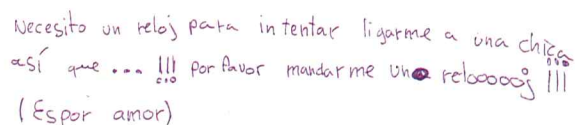 Necesito un reloj para intentar ligarme a una chica
así que ... !!! por favor mandarme un reloooooj !!!
(Espor amor)